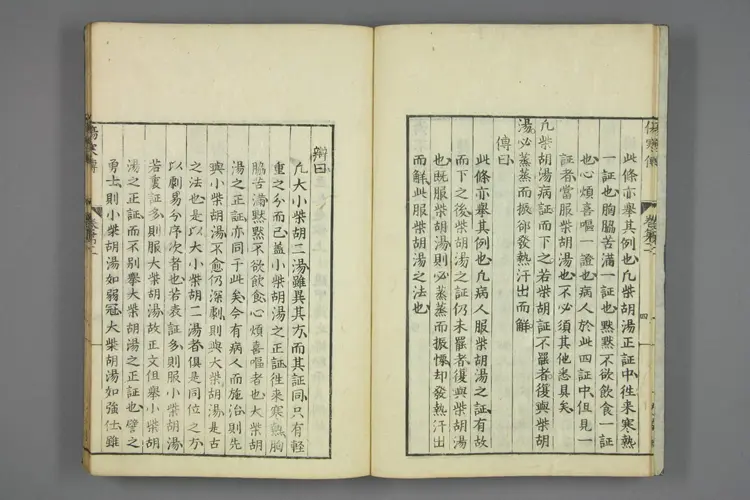 此條亦舉其例也凢柴胡湯正証中徃来寒熱
一証也胸脇苦滿一証也黙黙不欲飲食一証
也心煩喜嘔一證也病人於此四証中但見一
証者當服柴胡湯也不必須其他悉具矣
凢柴胡湯病証而下之若柴胡証不罷者復與柴胡
湯必蒸蒸而振卻發熱汗出而解
傳曰
此條亦舉其例也凢病人服柴胡湯之証有故
而下之後柴胡湯之証仍未罷者復與柴胡湯
也既服柴胡湯則必蒸蒸而振慄却發熱汗出
而解此服柴胡湯之法也
四
辯曰
凢大小柴胡二湯雖異其方而其証同只有輕
重之分而已蓋小柴胡湯之正証徃来寒熱胸
脇苦滿黙黙不欲飲食心煩喜嘔者也大柴胡
湯之正証亦同于此矣今有病人而施治則先
與小柴胡湯不愈仍深劇則與大柴胡湯是古
之法也是以大小柴胡二湯者俱是同位之方
以劇易分序次者也若表証多則服小柴胡湯
若裏証多則服大柴胡湯故正文但舉小柴胡
湯之正証而不别舉大柴胡湯之正証也譬之
勇士則小柴胡湯如弱冠大柴胡湯如強仕雖
傷寒傳